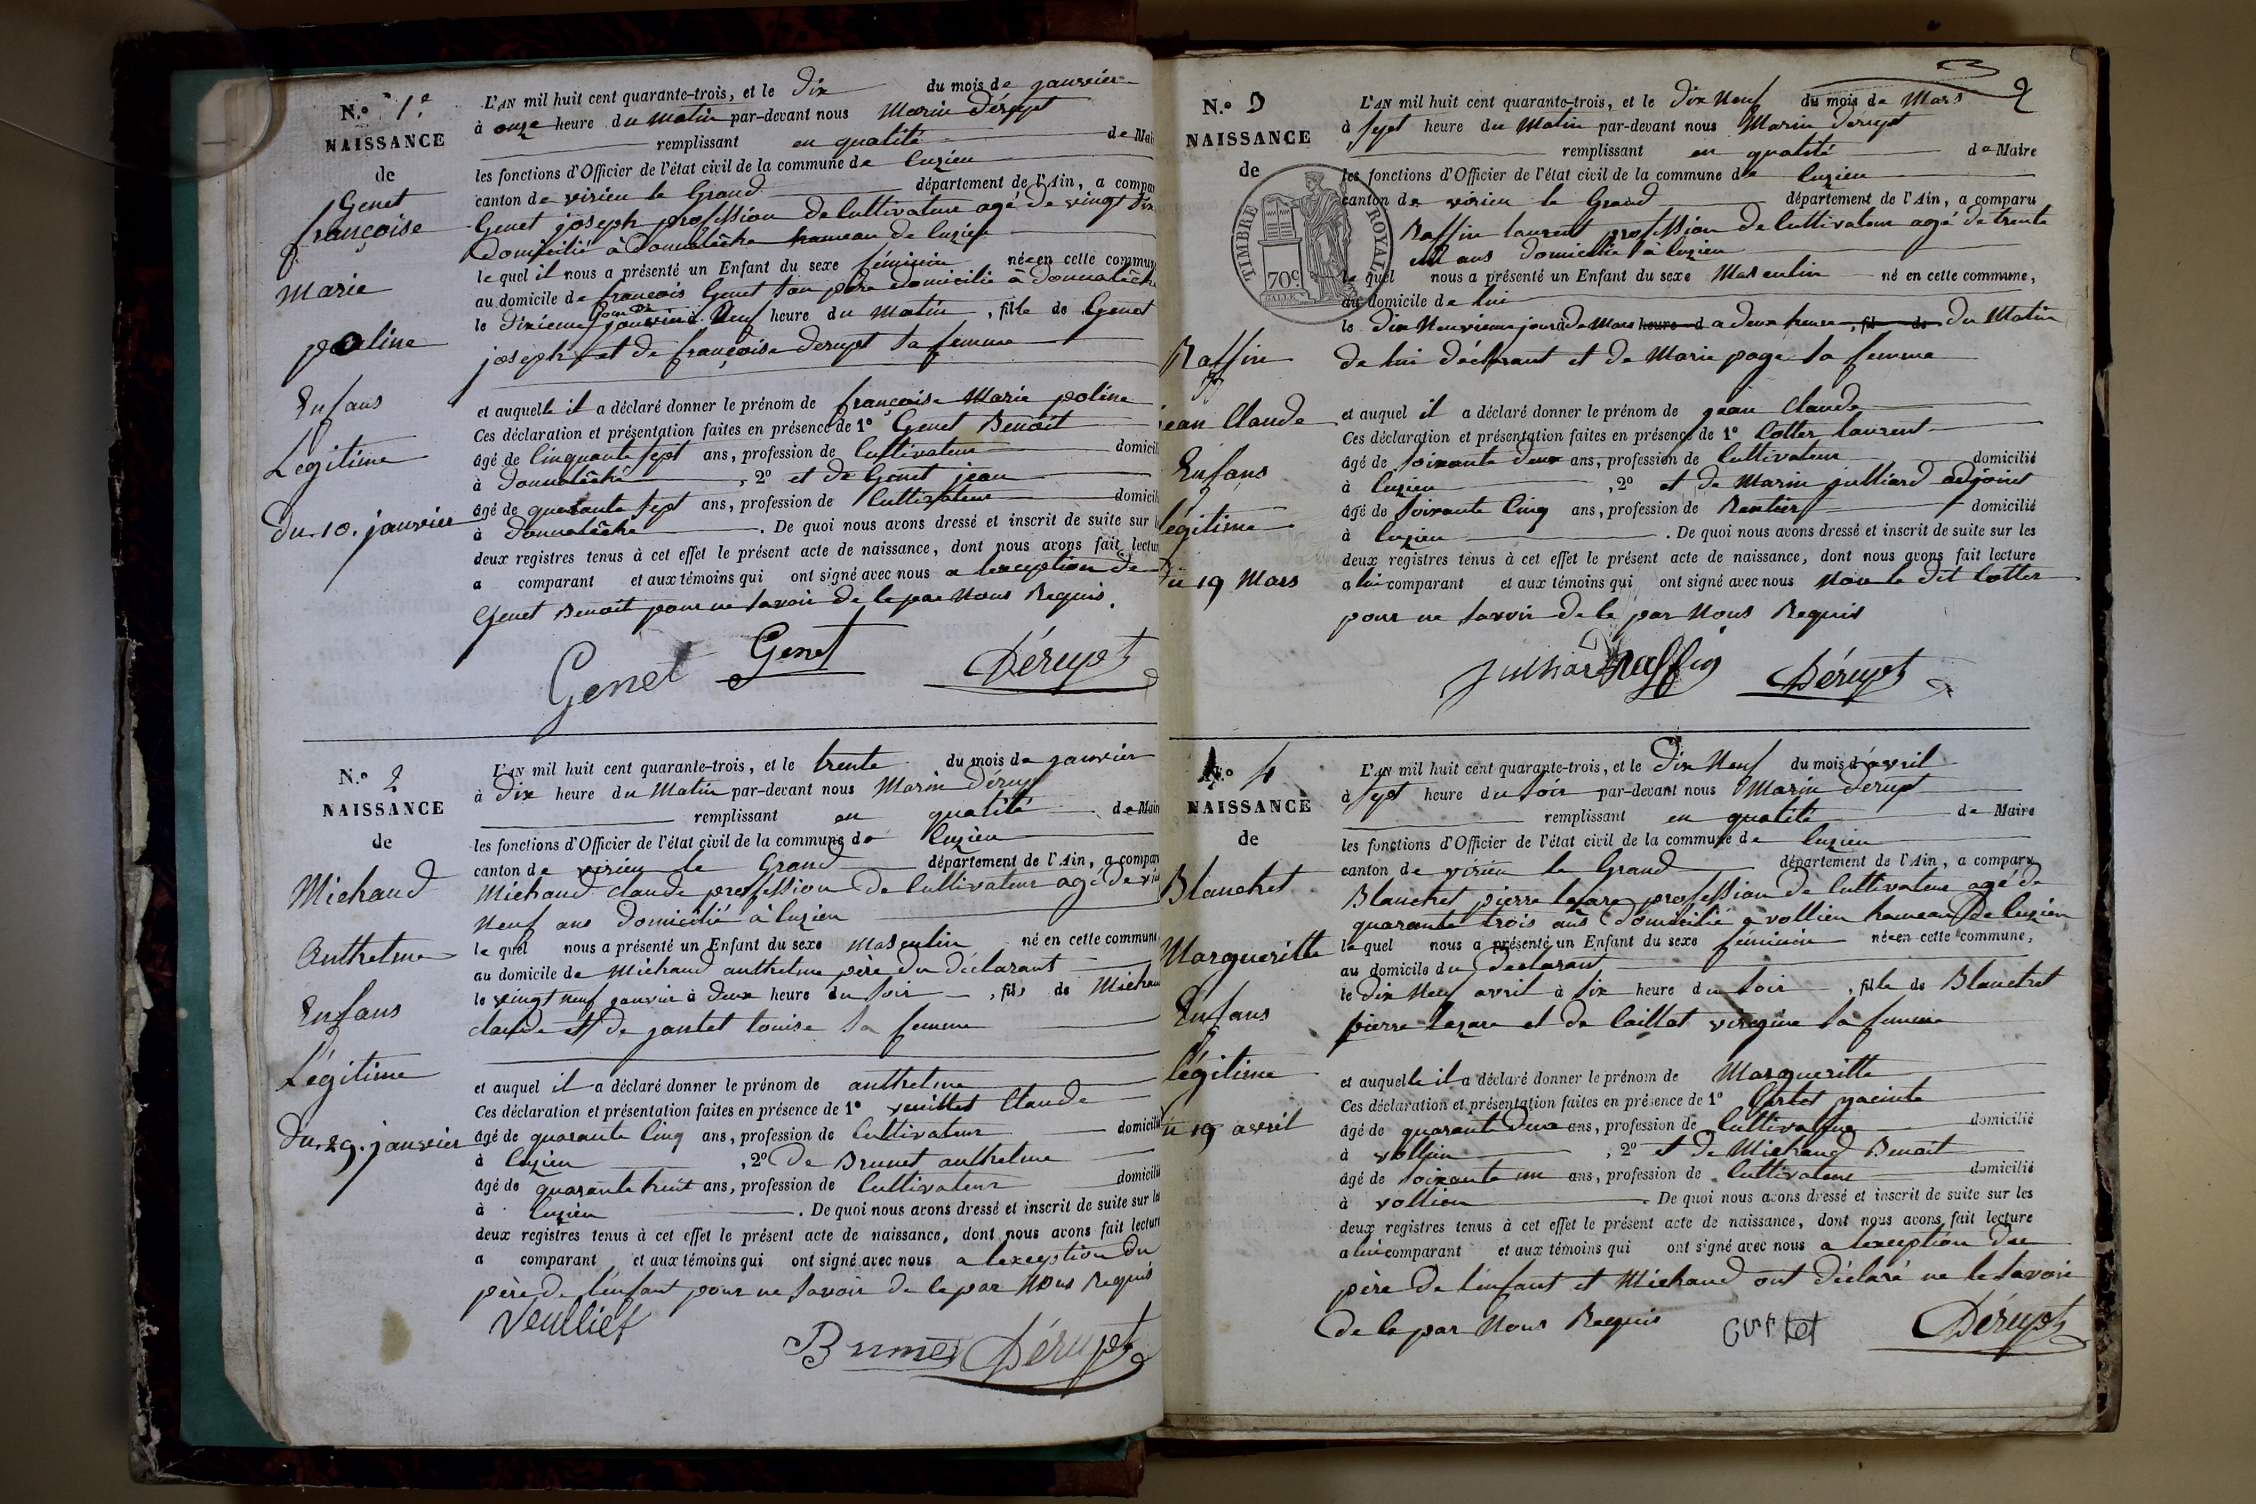 N.º 1.er
NAISSANCE
de
Genet
françoise
Marie
poline
Enfans
Légitime
Du. 10. janvier
L'AN mil huit cent quarante-trois, et le Dix du mois de janvier
à onze heure du matin par-devant nous Marin Dérupt
remplissant en qualité de Mai
les fonctions d'Officier de l'état civil de la commune de Cuzieu
canton de virieu le Grand département de l'Ain, a compar
Genet joseph profession de Cultivateur agé de vingt six
Domicilié à Donnalèche hameau de Cuzieu
le quel il nous a présenté un Enfant du sexe féminin née en cette commune
au domicile de françois Genet son père Domicilié à Donnalèche
le Dixieme jour de janvier à Neuf heure du Matin, fille de Genet
joseph et de françoise Derupt sa femme
et auquelle il a déclaré donner le prénom de françoise Marie poline
Ces déclaration et présentation faites en présence de 1º Genet Benoit
âgé de Cinquante sept ans, profession de Cultivateur domicili
à Donnalèche, 2º et de Genet jean
âgé de quarante sept ans, profession de Cultivateur domicili
à Donnalèche. De quoi nous avons dressé et inscrit de suite sur l
deux registres tenus à cet effet le présent acte de naissance, dont nous avons fait lectur
a comparant et aux témoins qui ont signé avec nous a lexception de
Genet Benoit pour ne savoir de le par Nous Requis.
Genet Genet Dérupt
N.º 2
NAISSANCE
de
Michaud
Anthelme
Enfans
Légitime
Du. 29. janvier
L'AN mil huit cent quarante-trois, et le trente du mois de janvier
à Dix heure du Matin par-devant nous Marin Dérupt
remplissant en qualité de Mair
les fonctions d'Officier de l'état civil de la commune de Cuzieu
canton de virieu le Grand département de l'Ain, a compar
Michaud claude profession de Cultivateur agé de vin
Neuf ans Domicilié à Cuzieu
le quel nous a présenté un Enfant du sexe Masculin né en cette commune
au domicile de Michaud anthelme père du déclarant
le vingt neuf janvier à Deux heure du soir, fils de Michau
claude et de jantet louise sa femme
et auquel il a déclaré donner le prénom de anthelme
Ces déclaration et présentation faites en présence de 1º veuillet Claude
âgé de quarante Cinq ans, profession de Cultivateur domicilié
à Cuzieu, 2º De Brunet anthelme
âgé de quarante huit ans, profession de Cultivateur domicilié
à Cuzieu. De quoi nous avons dressé et inscrit de suite sur les
deux registres tenus à cet effet le présent acte de naissance, dont nous avons fait lecture
a comparant et aux témoins qui ont signé avec nous a lexception du
père de l'enfant pour ne savoir de le par Nous Requis
Veulliet Brunet Dérupt
2
N.º 3
NAISSANCE
de
TIMBRE ROYAL
70c
Raffin
jean Claude
Enfans
légitime
Du 19 Mars
L'AN mil huit cent quarante-trois, et le Dix Neuf du mois de Mars
à sept heure du Matin par-devant nous Marin Derupt
remplissant en qualité de Maire
les fonctions d'Officier de l'état civil de la commune de Cuzieu
canton de virieu le Grand département de l'Ain, a comparu
Raffin laurent profession de Cultivateur agé de trente
ans domicilié à Cuzieu
le quel nous a présenté un Enfant du sexe Masculin né en cette commune,
au domicile de lui
le Dix Neuvieme jour de Mars heure d a deux heure, fil de du Matin
de lui déclarant et de Marie page sa femme
et auquel il a déclaré donner le prénom de jean Claude
Ces déclaration et présentation faites en présence de 1º Cotter laurent
âgé de soixante deux ans, profession de Cultivateur domicilié
à Cuzieu, 2º et de Marin julliard adjoint
âgé de soixante Cinq ans, profession de Rentier domicilié
à Cuzieu. De quoi nous avons dressé et inscrit de suite sur les
deux registres tenus à cet effet le présent acte de naissance, dont nous avons fait lecture
a lui comparant et aux témoins qui ont signé avec nous Non le dit Cotter
pour ne savoir de le par Nous Requis
Julliard Raffin Dérupt
N.º 4
NAISSANCE
de
Blanchet
Margueritte
Enfans
légitime
Du 19 avril
L'AN mil huit cent quarante-trois, et le Dix Neuf du mois d'avril
à sept heure du soir par-devant nous Marin Dérupt
remplissant en qualité de Maire
les fonctions d'Officier de l'état civil de la commune de Cuzieu
canton de virieu le Grand département de l'Ain, a comparu
Blanchet pierre lazare profession de Cultivateur agé de
quarante trois ans Domicilié a vollien hameau de Cuzieu
le quel nous a présenté un Enfant du sexe féminin née en cette commune,
au domicile du Declarant
le Dix Neuf avril à six heure du soir, fille de Blanchet
pierre lazare et de Caillat virginie sa femme
et auquelle il a déclaré donner le prénom de Margueritte
Ces déclaration et présentation faites en présence de 1º Curtet yacinte
âgé de quarant deux ans, profession de Cultivateur domicilié
à vollien, 2º et de Michaud Benoit
âgé de soixante un ans, profession de Cultivateur domicilié
à vollien. De quoi nous avons dressé et inscrit de suite sur les
deux registres tenus à cet effet le présent acte de naissance, dont nous avons fait lecture
a lui comparant et aux témoins qui ont signé avec nous a lexception du
père de l'enfant et Michaud ont déclaré ne le savoir
de le par Nous Requis Curtet Dérupt